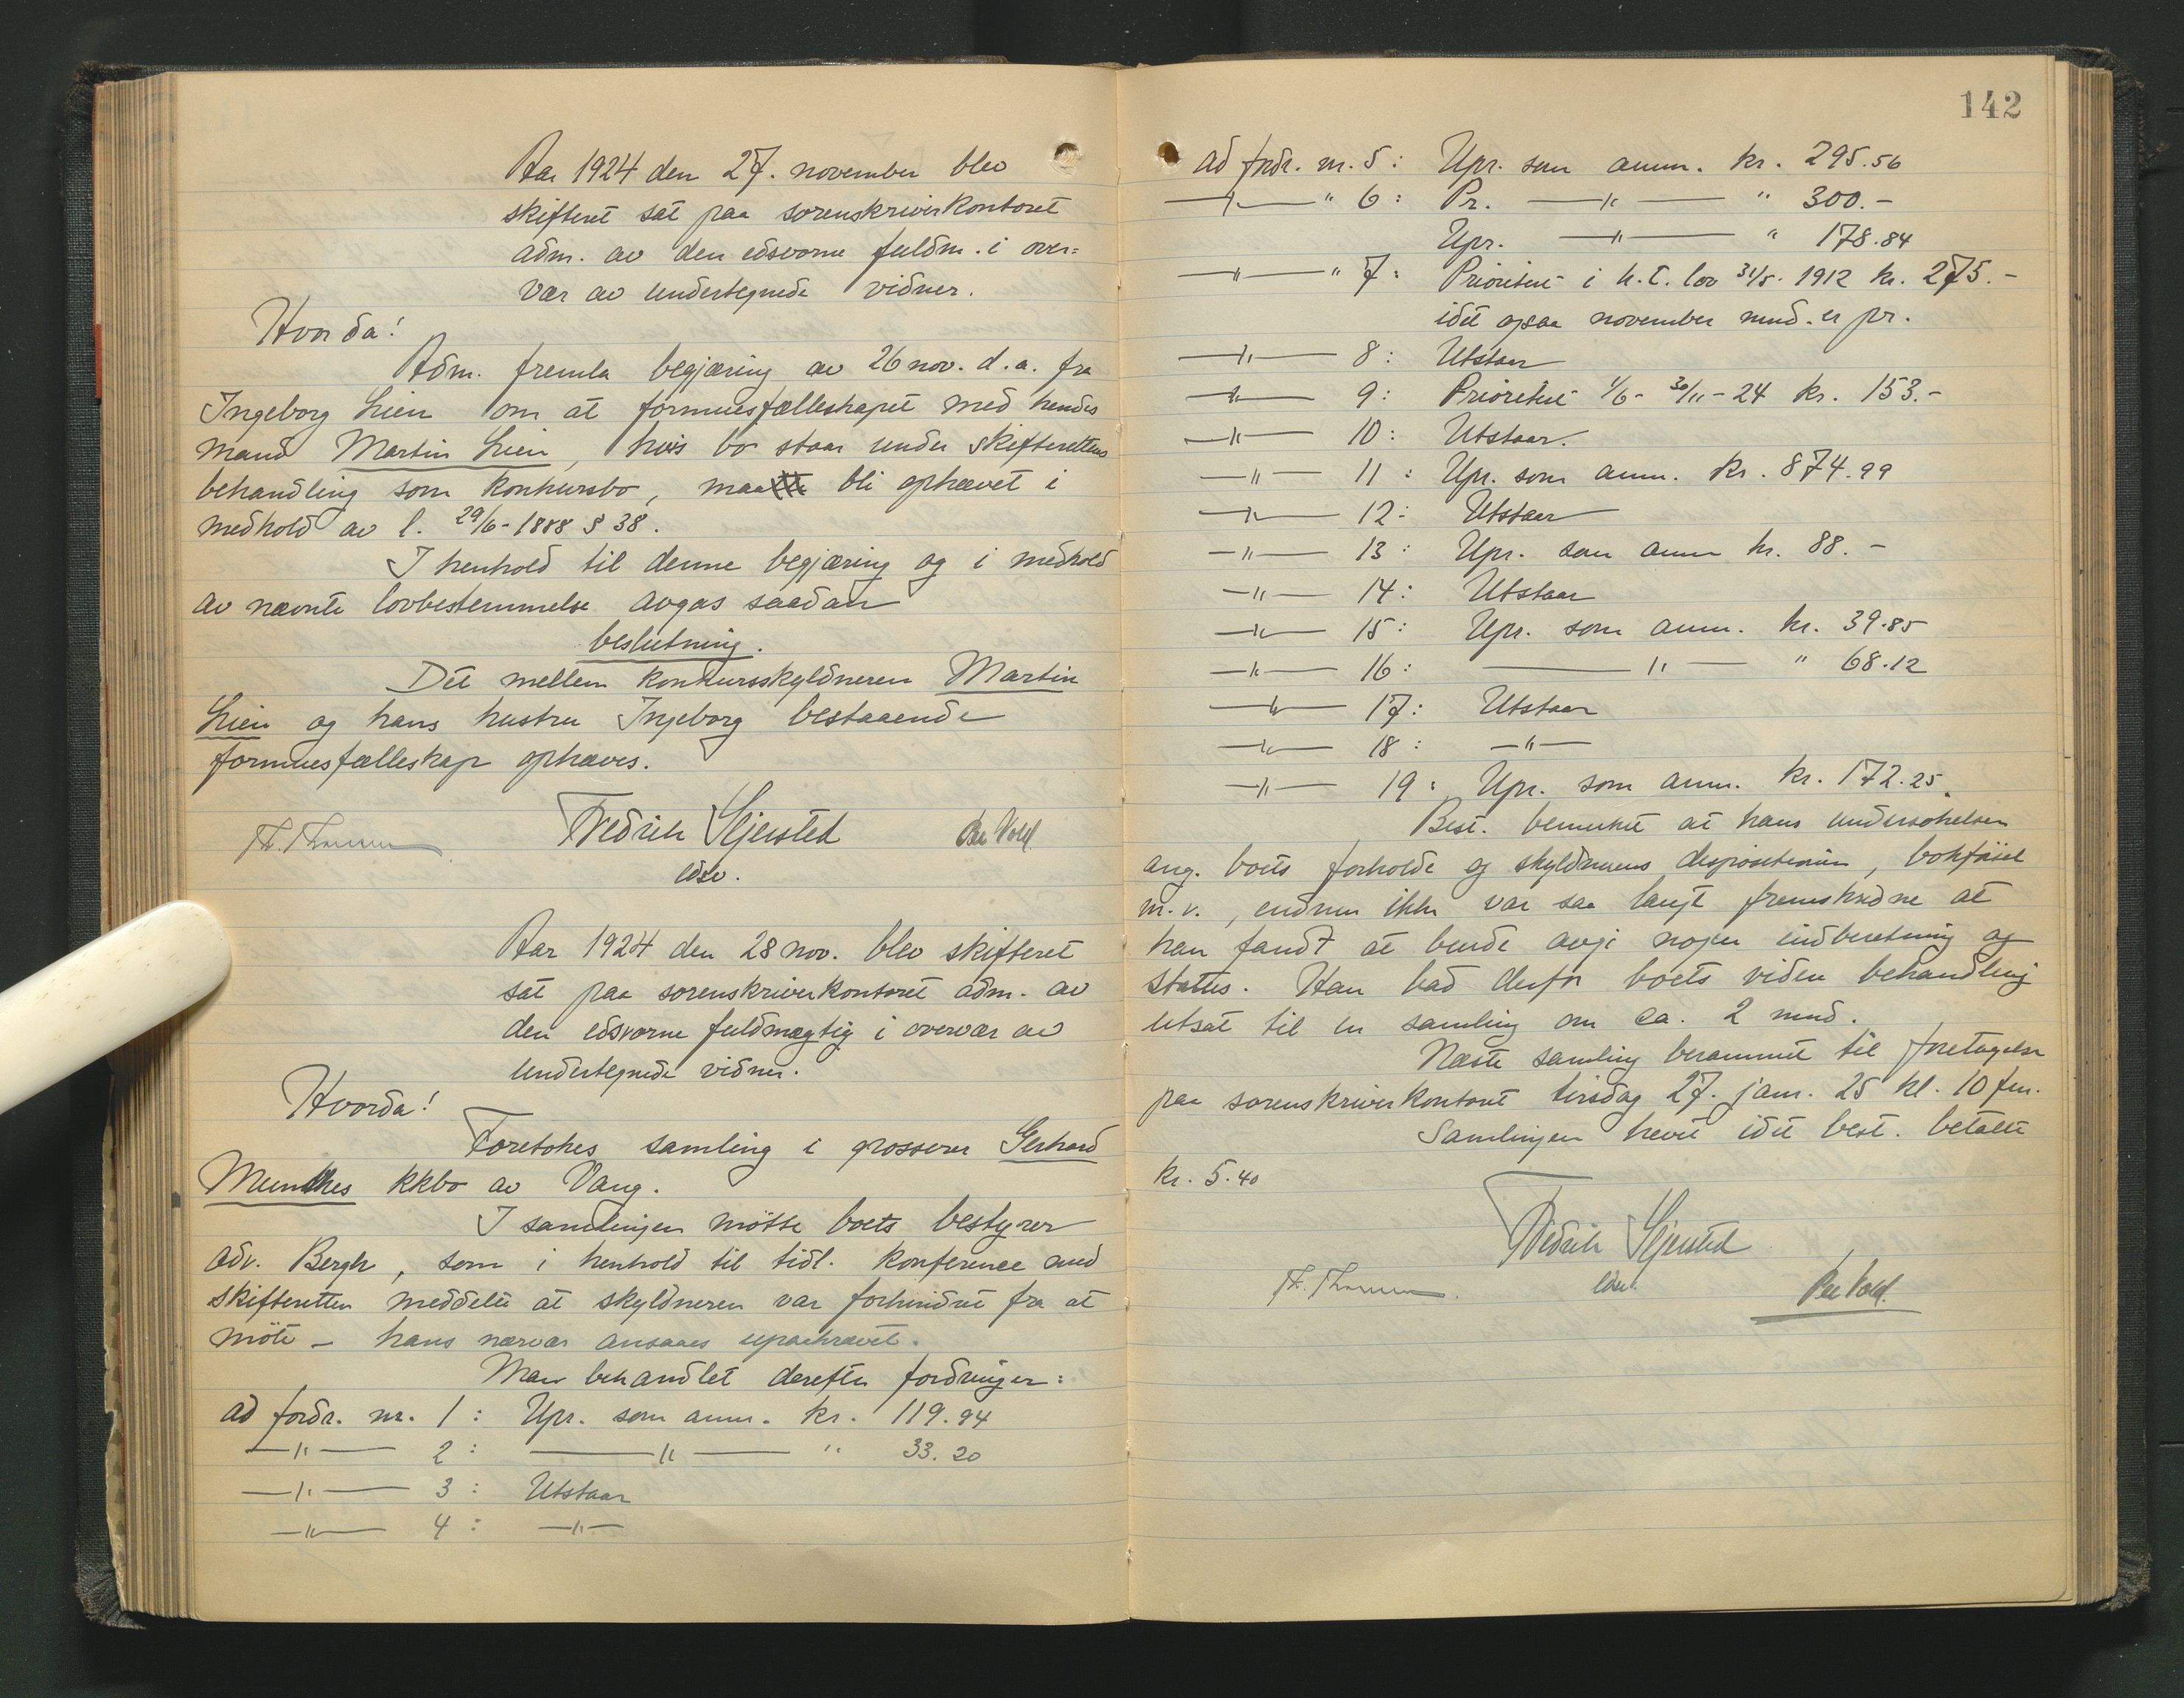 Aar 1924 den 27. november blev
skifteret sat paa sorenskriverkontoret
adm. av den edsvorne fuldm. i over=
vær av undertegnede vidner.
Hvorda!
Adm. fremla begjæring av 26 nov. d.a. fra
Ingeborg Lien om at formuesfælleskapet med hendes
mand Martin Lien, hvis bo staar under skifterettens
behandling som konkursbo, maa bli ophævet i
medhold av l. 29/6-1888 § 38.
I henhold til denne begjæring og i medhold
av nævnte lovbestemmelse avgas saadan
beslutning.
Det mellem konkursskyldneren Martin
Lien og hans hustru Ingeborg bestaaende
formuesfælleskap ophæves.
Th. Fredrik Gjersted Per Vold
edsv.
Aar 1924 den 28 nov. blev skifteret
sat paa sorenskriverkontoret adm. av
den edsvorne fuldmægtig i overvær av
undertegnede vidner.
Hvorda!
Foretokes samling i grosserer Gerhard
Munthes kkbo av Vang.
I samlingen møtte boets bestyrer
adv. Bergh, som i henhold til tidl. konference med
skifteretten meddelte at skyldneren var forhindret fra at
møte – hans nærvær ansaaes upaakrævet.
Man behandlet derefter fordringer:
ad fordr. nr. 1 : Upr. som anm. kr. 119.94
—"— 2 : —"— " 33.20
—"— 3 : Utstaar
—"— 4 : —"—
142
ad fordr. nr. 5 : Upr. som anm. kr. 295.56
—"— " 6 : Pr. —"— " 300.-
Upr. —"— " 178.84
—"— " 7 : Prioritert i h.t. lov 31/5. 1912 kr. 275.-
idet ogsaa november mnd. er pr.
—"— 8 : Utstaar
—"— 9 : Prioritert 1/6 - 30/11 - 24 kr. 153.-
—"— 10 : Utstaar.
—"— 11 : Upr. som anm. kr. 874.99
—"— 12 : Utstaar
—"— 13 : Upr. som anm kr. 88. -
—"— 14 : Utstaar
—"— 15 : Upr. som anm. kr. 39.85
—"— 16 : —"— " 68.12
—"— 17 : Utstaar
—"— 18 : —"—
—"— 19 : Upr. som anm. kr. 172.25.
Best. bemerket at hans undersøkelser
ang. boets forholde og skyldnerens dispositioner, bokførsel
m.v., endnu ikke var saa langt fremskredne at
han fandt at burde avgi nogen indberetning og
status. Han bad derfor boets videre behandling
utsat til en samling om ca. 2 mnd.
Næste samling berammet til foretagelse
paa sorenskriverkontoret tirsdag 27. jan. 25 kl. 10 fm.
Samlingen hævet idet best. betalte
kr. 5.40
Fredrik Gjersted
Th. edsv. Per Vold.